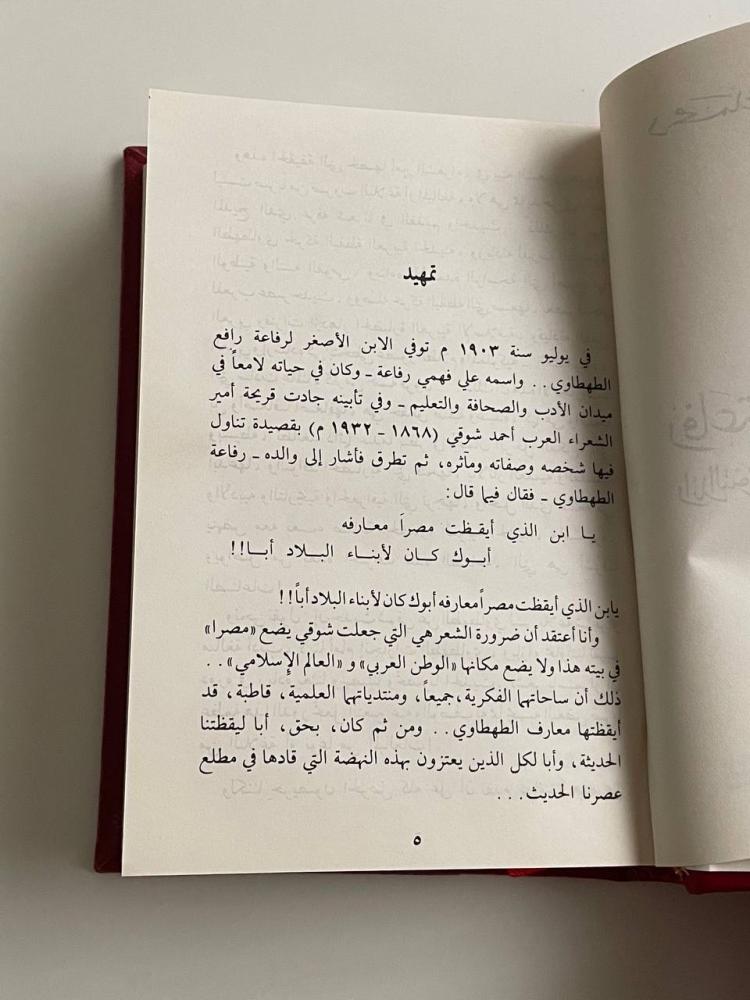 تمهيد
في يوليو سنة ١٩٠٣ م توفي الابن الأصغر لرفاعة رافع
الطهطاوي . . واسمه علي فهمي رفاعة ـ وكان في حياته لامعاً في
ميدان الأدب والصحافة والتعليم ـ وفي تأبينه جادت قريحة أمير
الشعراء العرب أحمد شوقي (١٨٦٨ ـ ١٩٣٢ م) بقصيدة تناول
فيها شخصه وصفاته ومآثره، ثم تطرق فأشار إلى والده ـ رفاعة
الطهطاوي ـ فقال فيما قال:
يـا ابن الذي أيقـظت مصراَ معـارفه
أبـوك كـان لأبنـاء البـلاد أبـا!!
يابن الذي أيقظت مصراً معارفه أبوك كان لأبناء البلاد أباً!!
وأنا أعتقد أن ضرورة الشعر هي التي جعلت شوقي يضع «مصرا»
في بيته هذا ولا يضع مكانها «الوطن العربي» و «العالم الإسلامي» . .
ذلك أن ساحاتهما الفكرية، جميعاً، ومنتدياتهما العلمية، قاطبة، قد
أيقظتها معارف الطهطاوي . . ومن ثم كان، بحق، أبا ليقظتنا
الحديثة، وأبا لكل الذين يعتزون بهذه النهضة التي قادها في مطلع
عصرنا الحديث . . .
٥